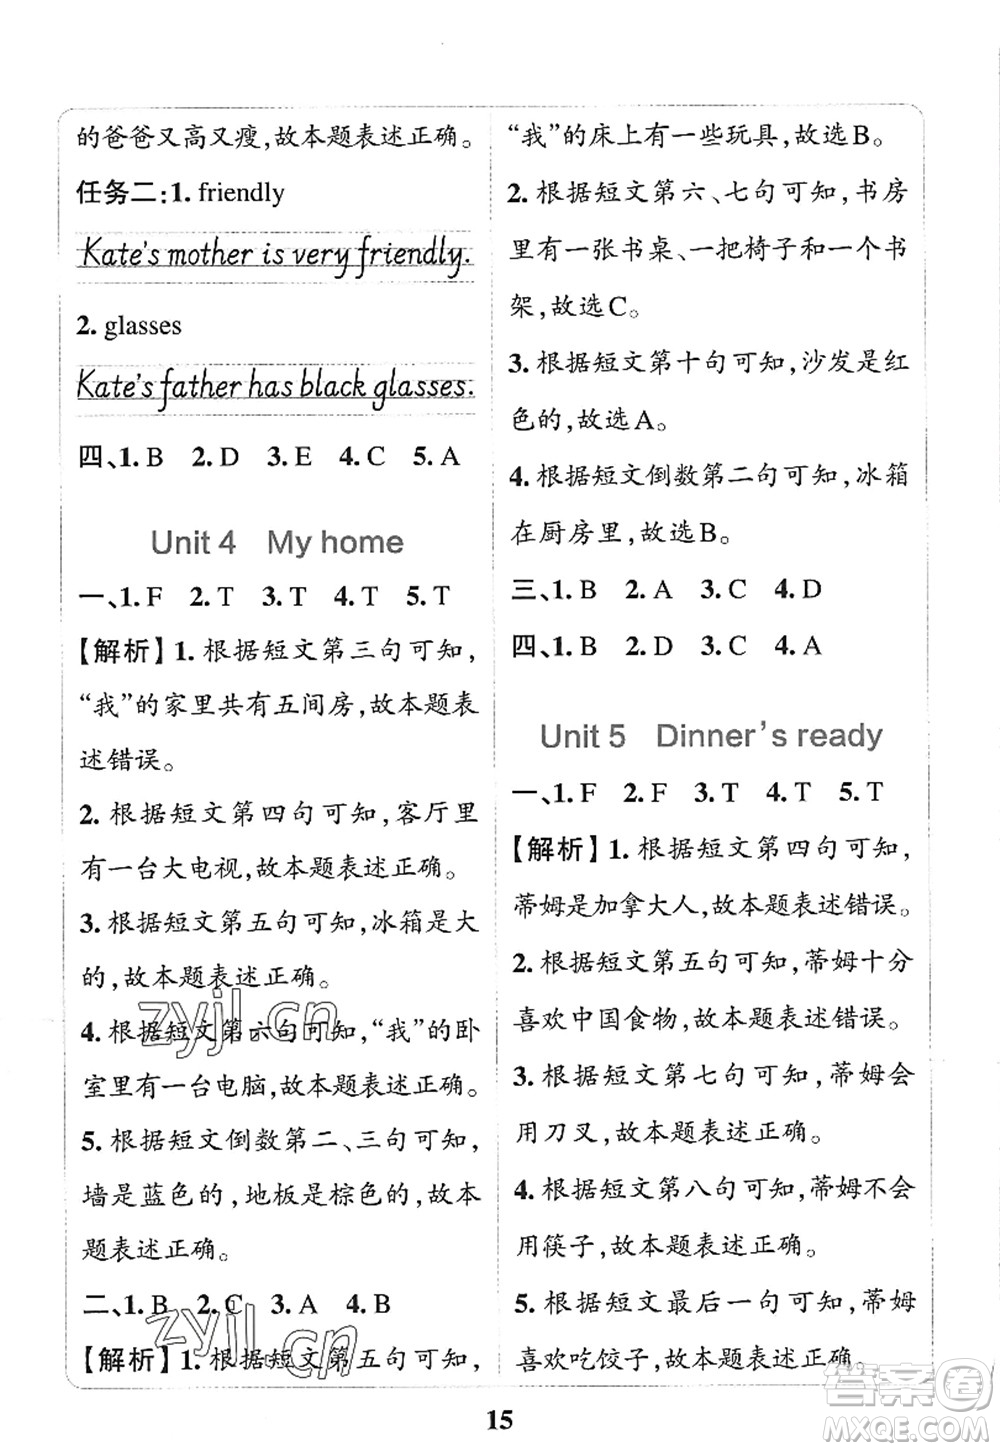 的爸爸又高又瘦,故本题表述正确。
任务二:1. friendly
Kate's mother is very friendly.
2. glasses
Kate's father has black glasses.
四、1. B 2. D 3. E 4. C 5. A
Unit 4 My home
一、1. F 2. T 3. T 4. T 5. T
【解析】1. 根据短文第三句可知,
“我”的家里共有五间房,故本题表
述错误。
2. 根据短文第四句可知,客厅里
有一台大电视,故本题表述正确。
3. 根据短文第五句可知,冰箱是大
的,故本题表述正确。
4. 根据短文第六句可知,“我”的卧
室里有一台电脑,故本题表述正确。
5. 根据短文倒数第二、三句可知,
墙是蓝色的,地板是棕色的,故本
题表述正确。
二、1. B 2. C 3. A 4. B
【解析】1. 根据短文第五句可知,
“我”的床上有一些玩具,故选B。
2. 根据短文第六、七句可知,书房
里有一张书桌、一把椅子和一个书
架,故选C。
3. 根据短文第十句可知,沙发是红
色的,故选A。
4. 根据短文倒数第二句可知,冰箱
在厨房里,故选B。
三、1. B 2. A 3. C 4. D
四、1. B 2. D 3. C 4. A
Unit 5 Dinner's ready
一、1. F 2. F 3. T 4. T 5. T
【解析】1. 根据短文第四句可知,
蒂姆是加拿大人,故本题表述错误。
2. 根据短文第五句可知,蒂姆十分
喜欢中国食物,故本题表述错误。
3. 根据短文第七句可知,蒂姆会
用刀叉,故本题表述正确。
4. 根据短文第八句可知,蒂姆不会
用筷子,故本题表述正确。
5. 根据短文最后一句可知,蒂姆
喜欢吃饺子,故本题表述正确。
15
zyjl.cn
zyjl.cn
答案圈
MXQE.COM